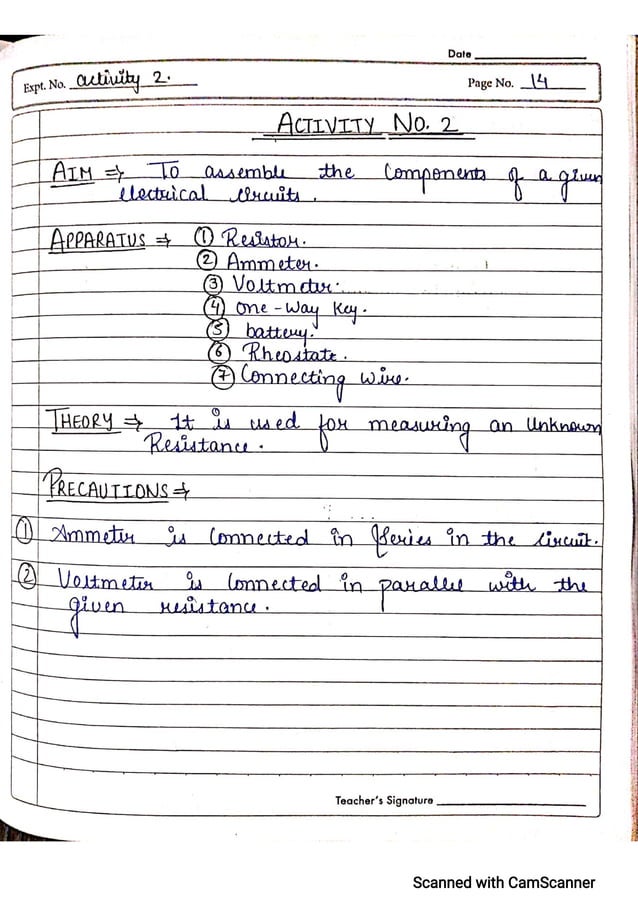 Date
Expt. No. activity 2.
Page No. 14
ACTIVITY NO. 2
AIM ⇒ To assemble the components of a given
electrical circuits.
APPARATUS ⇒ ① Resistor.
② Ammeter.
③ Voltmeter.
④ one-way key.
⑤ battery.
⑥ Rheostate.
⑦ Connecting wire.
THEORY ⇒ It is used for measuring an Unknown
Resistance.
PRECAUTIONS ⇒
① Ammeter is connected in Series in the circuit.
② Voltmeter is connected in parallel with the
given resistance.
Teacher's Signature
Scanned with CamScanner